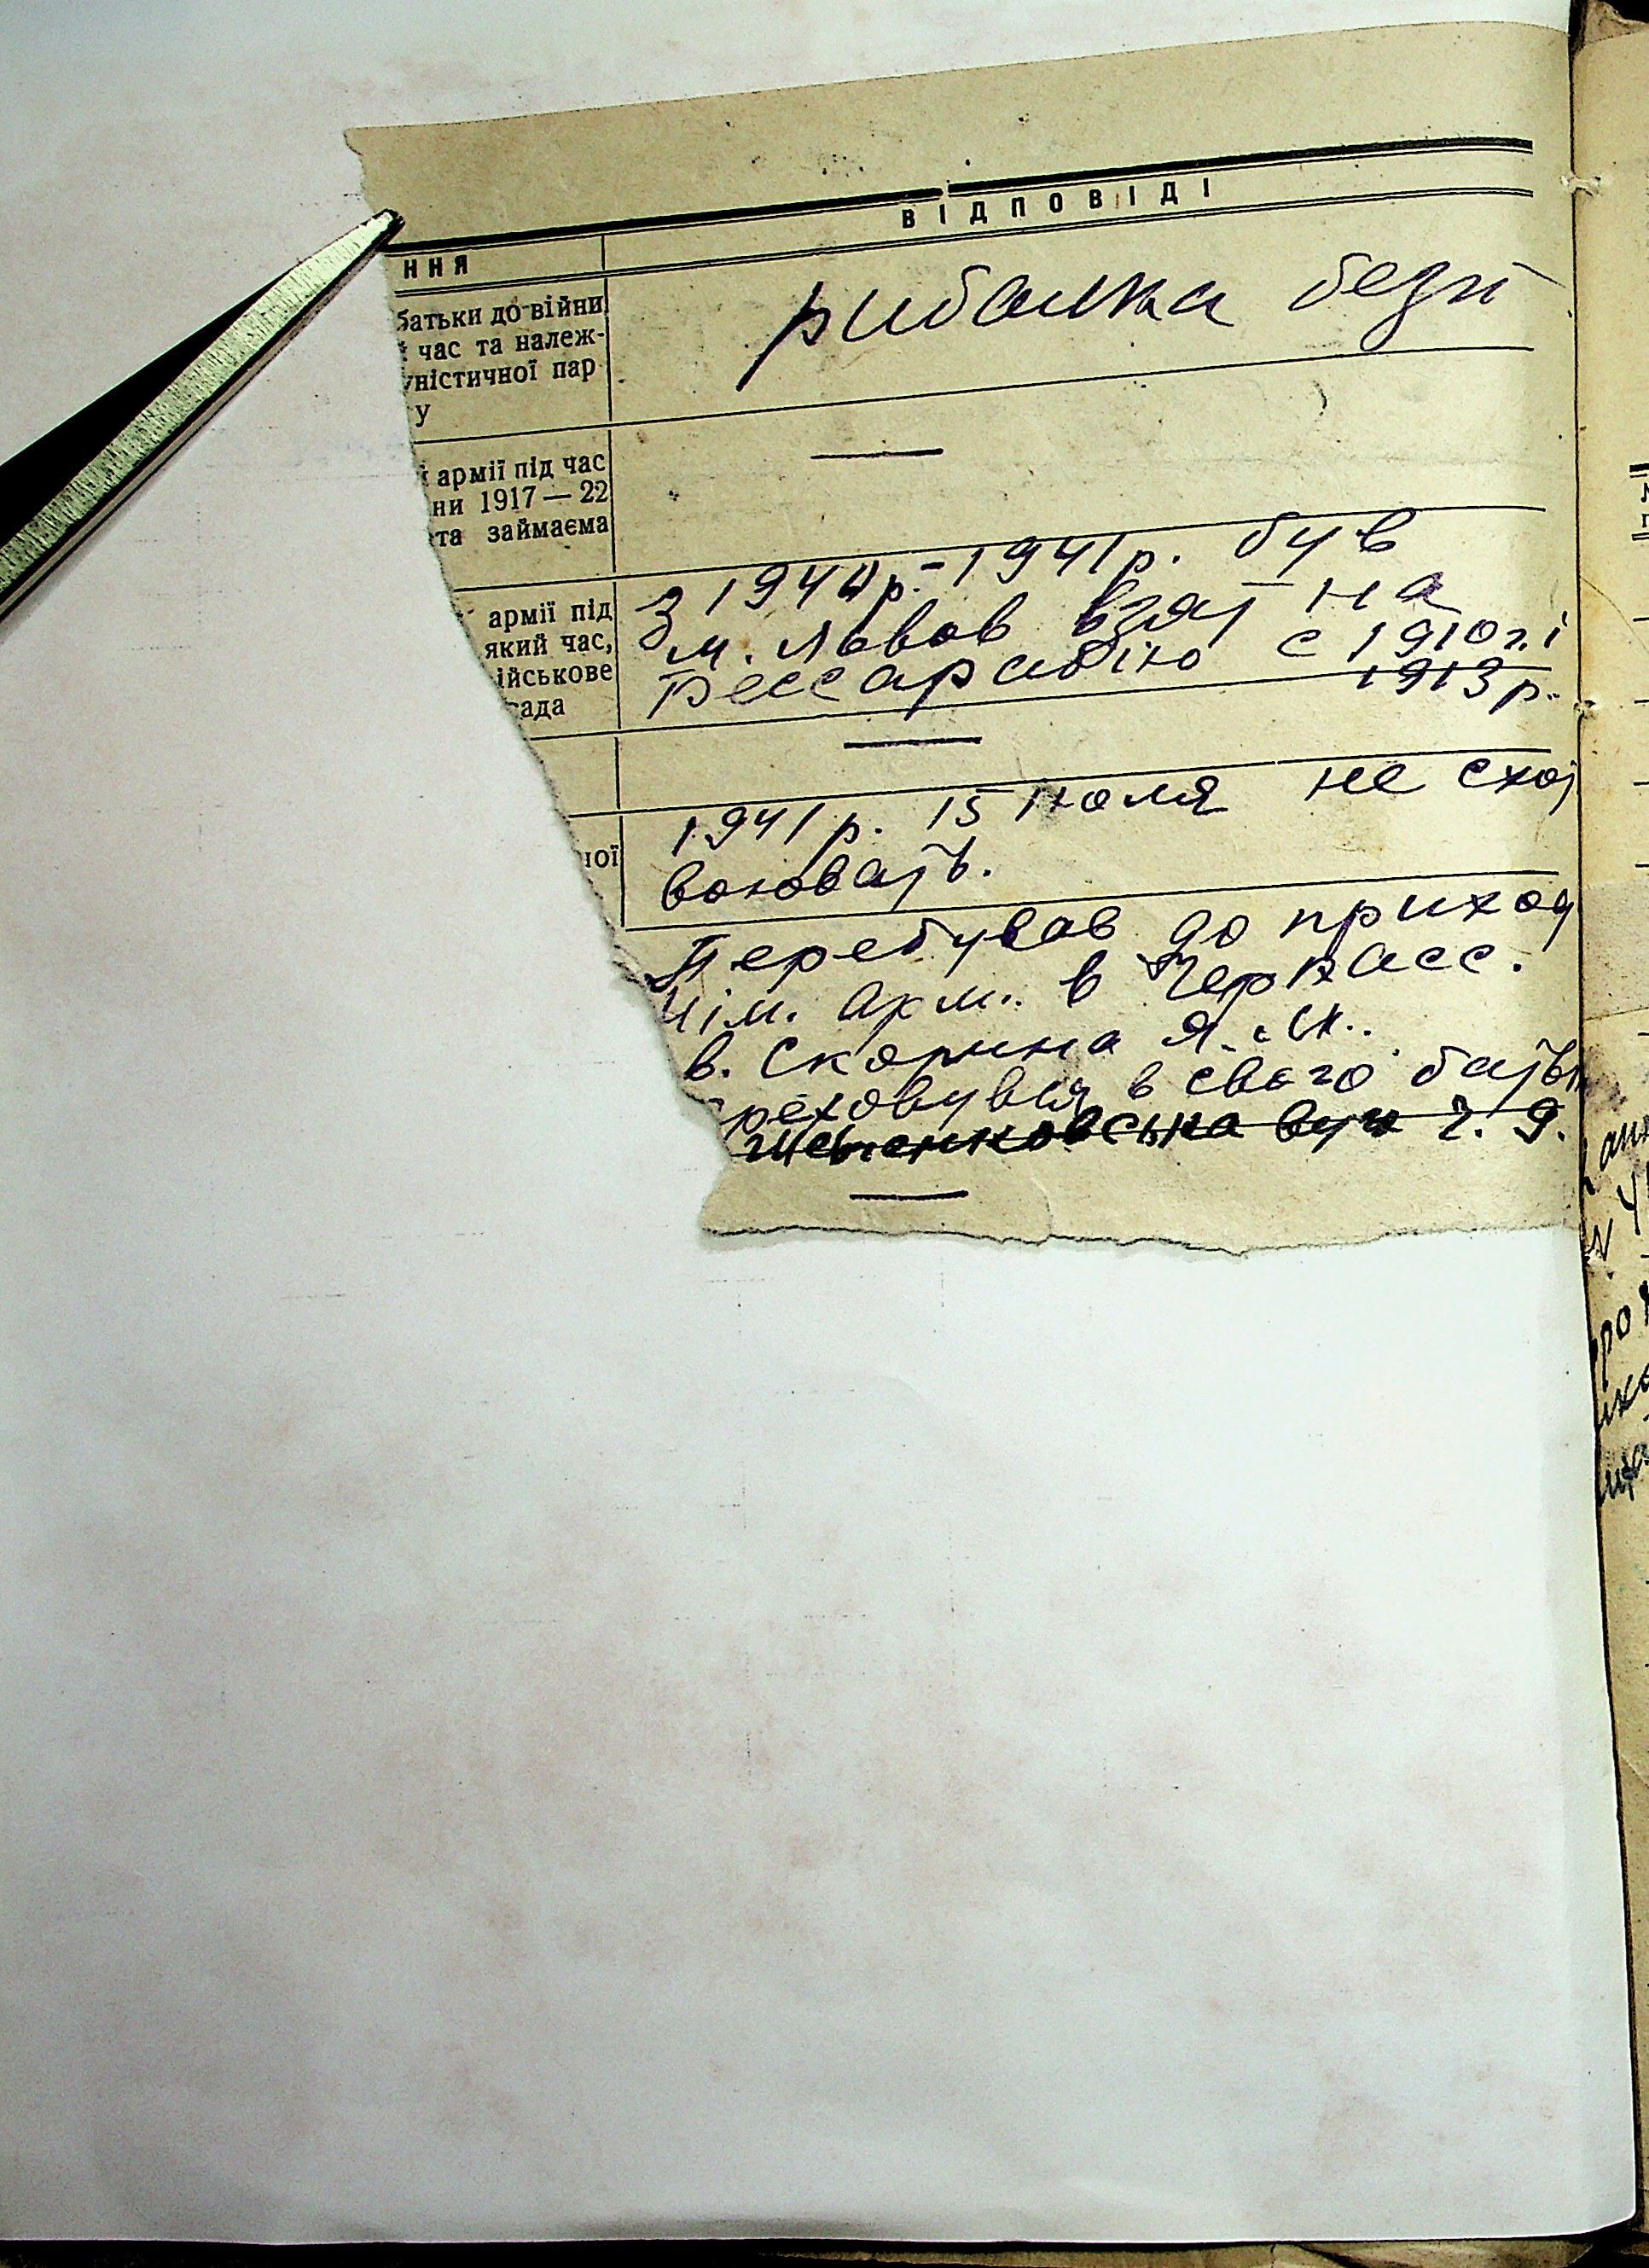 ВІДПОВІДІ
ння
батьки до війни
час та належ-
уністичної пар
у
рибалка безп
армії під час
ни 1917 — 22
та займаєма
армії під
який час,
ійськове
сада
З 1940р.-1941р. був
м. Львов взят на
Бессарабію с 1910г. і
1913р.
ної
1941р. 15 июля не схот
воювать.
Перебував до приход
нім. арм. в Черкасс.
в. Скорина Я. М.
реховувся в свого батьк
Шевченковська вул